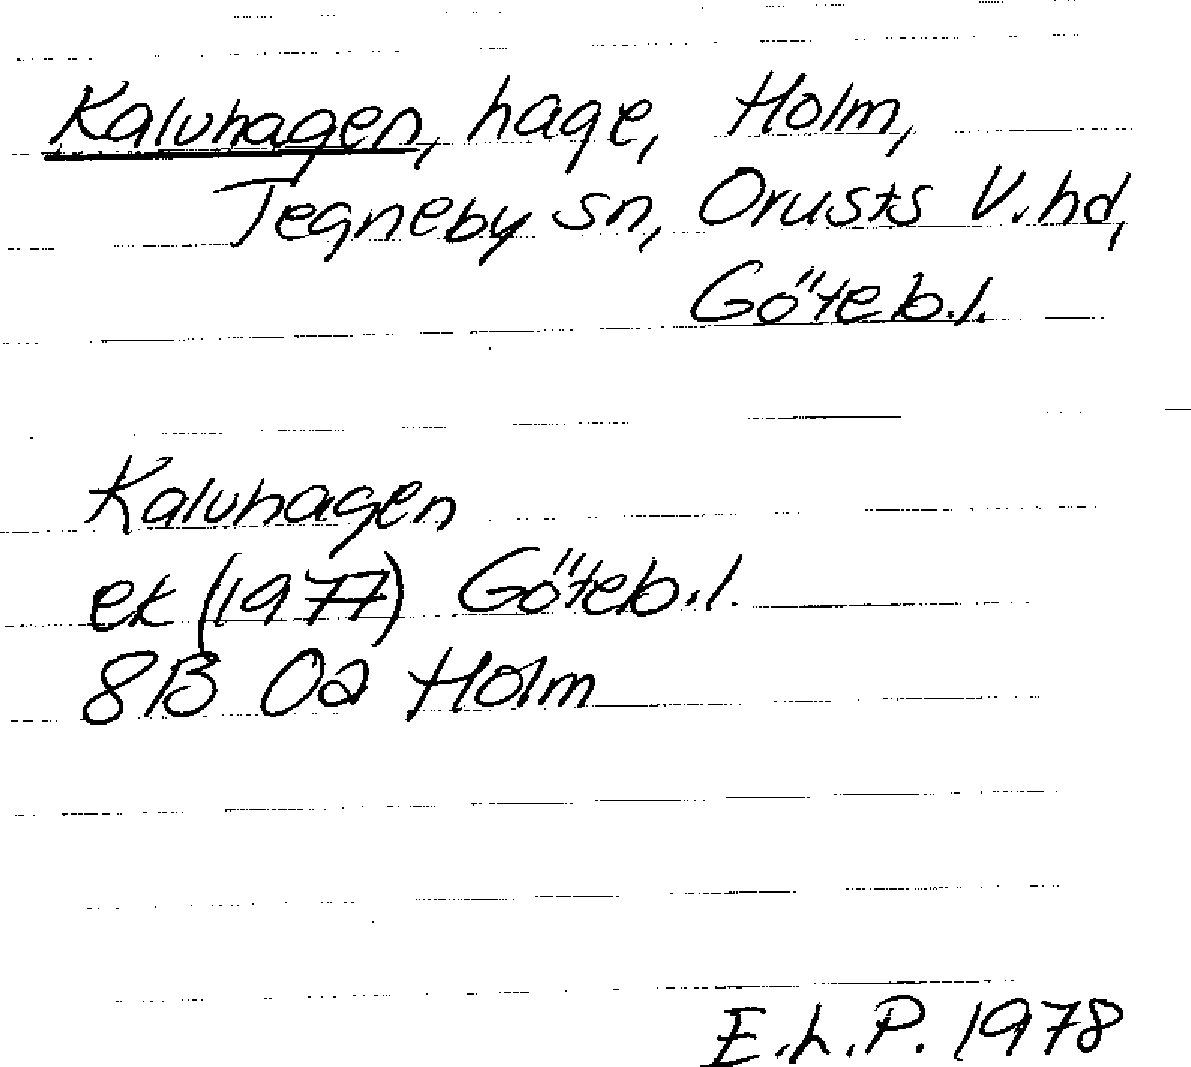 Kalvhagen, hage, Holm,
Tegneby sn, Orusts V. hd,
Göteb.l.
Kalvhagen
ek (1977) Göteb.l.
8B 0a Holm
E.L.P. 1978